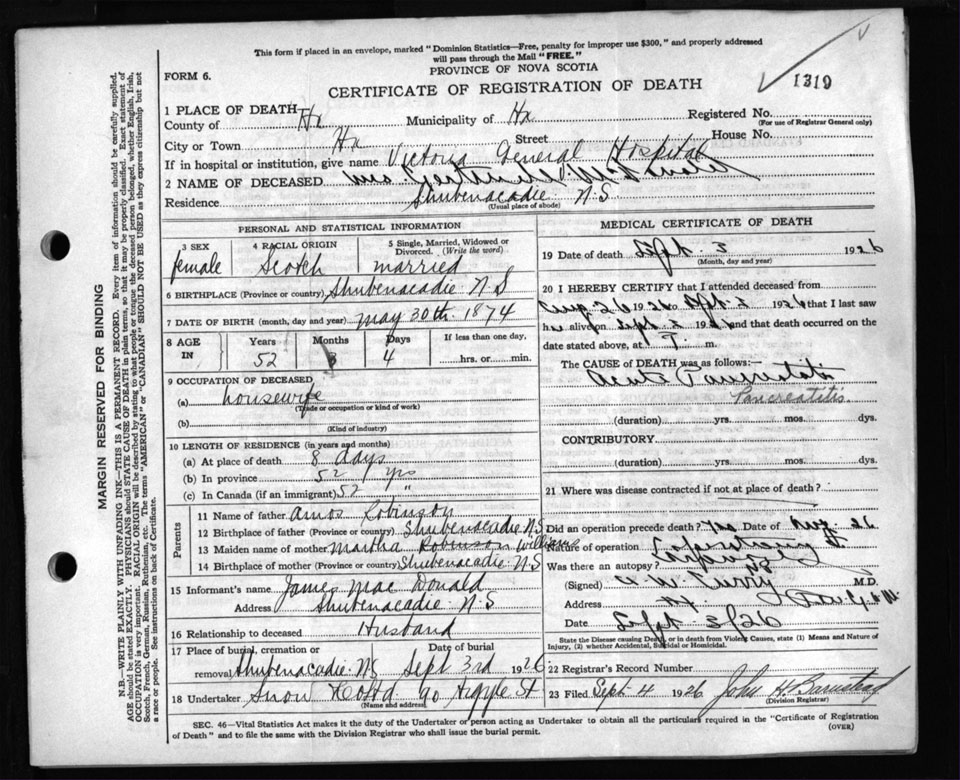 This form if placed in an envelope, marked "Dominion Statistics—Free, penalty for improper use $300," and properly addressed
will pass through the Mail "FREE."
FORM 6.
PROVINCE OF NOVA SCOTIA
1319
CERTIFICATE OF REGISTRATION OF DEATH
1 PLACE OF DEATH
County of Hx Municipality of Hx Registered No.
(For use of Registrar General only)
City or Town Hx Street House No.
If in hospital or institution, give name Victoria General Hospital
2 NAME OF DECEASED Mrs Gertrude
Residence Shubenacadie N.S
(Usual place of abode)
PERSONAL AND STATISTICAL INFORMATION
3 SEX 4 RACIAL ORIGIN 5 Single, Married, Widowed or
Divorced. (Write the word)
female Scotch married
6 BIRTHPLACE (Province or country) Shubenacadie N S
7 DATE OF BIRTH (month, day and year) May 30th 1874
8 AGE IN Years Months Days If less than one day,
52 3 4 hrs. or min.
9 OCCUPATION OF DECEASED
(a) housewife
(Trade or occupation or kind of work)
(b)
(Kind of industry)
10 LENGTH OF RESIDENCE (in years and months)
(a) At place of death 8 days
(b) In province 52 yrs
(c) In Canada (if an immigrant) 52 "
Parents
11 Name of father Amos Robinson
12 Birthplace of father Shubenacadie N.S
13 Maiden name of mother Martha Robinson Williams
14 Birthplace of mother Shubenacadie N.S
15 Informant's name James Mac Donald
Address Shubenacadie N.S
16 Relationship to deceased Husband
17 Place of burial, cremation or Date of burial
removal Shubenacadie NS Sept 3rd 1926
18 Undertaker Snow 90 Argyle St
(Name and address)
MEDICAL CERTIFICATE OF DEATH
19 Date of death Sept. 3 1926
(Month, day and year)
20 I HEREBY CERTIFY that I attended deceased from
Aug 26 1926 to Sept. 1926 that I last saw
her alive on Sept. 2 1926 and that death occurred on the
date stated above, at 7 m.
The CAUSE OF DEATH was as follows:—
Acute Pancreatitis
Pancreatitis
(duration) yrs. mos. dys.
CONTRIBUTORY
(duration) yrs. mos. dys.
21 Where was disease contracted if not at place of death?
Did an operation precede death? Yes Date of Aug 26
Nature of operation
Was there an autopsy?
(Signed) W. Curry M.D.
Address Hx
Date Sept 3/26
State the Disease causing Death, or in death from Violent Causes, state (1) Means and Nature of
Injury, (2) whether Accidental, Suicidal or Homicidal.
22 Registrar's Record Number
23 Filed Sept. 4 1926 John H. Barnstead
(Division Registrar)
SEC. 46—Vital Statistics Act makes it the duty of the Undertaker or person acting as Undertaker to obtain all the particulars required in the "Certificate of Registration
of Death" and to file the same with the Division Registrar who shall issue the burial permit. (OVER)
MARGIN RESERVED FOR BINDING
N.B.—WRITE PLAINLY WITH UNFADING INK—THIS IS A PERMANENT RECORD. Every item of information should be carefully supplied.
AGE should be stated EXACTLY. PHYSICIANS should STATE CAUSE OF DEATH in plain terms, so that it may be properly classified. Exact statement of
OCCUPATION is very important. RACIAL ORIGIN will be described by stating to what people or tongue the deceased person belonged, whether English, Irish,
Scotch, French, German, Russian, Ruthenian, etc. The terms "AMERICAN" or "CANADIAN" SHOULD NOT BE USED as they express citizenship but not
a race or people. See instructions on back of Certificate.